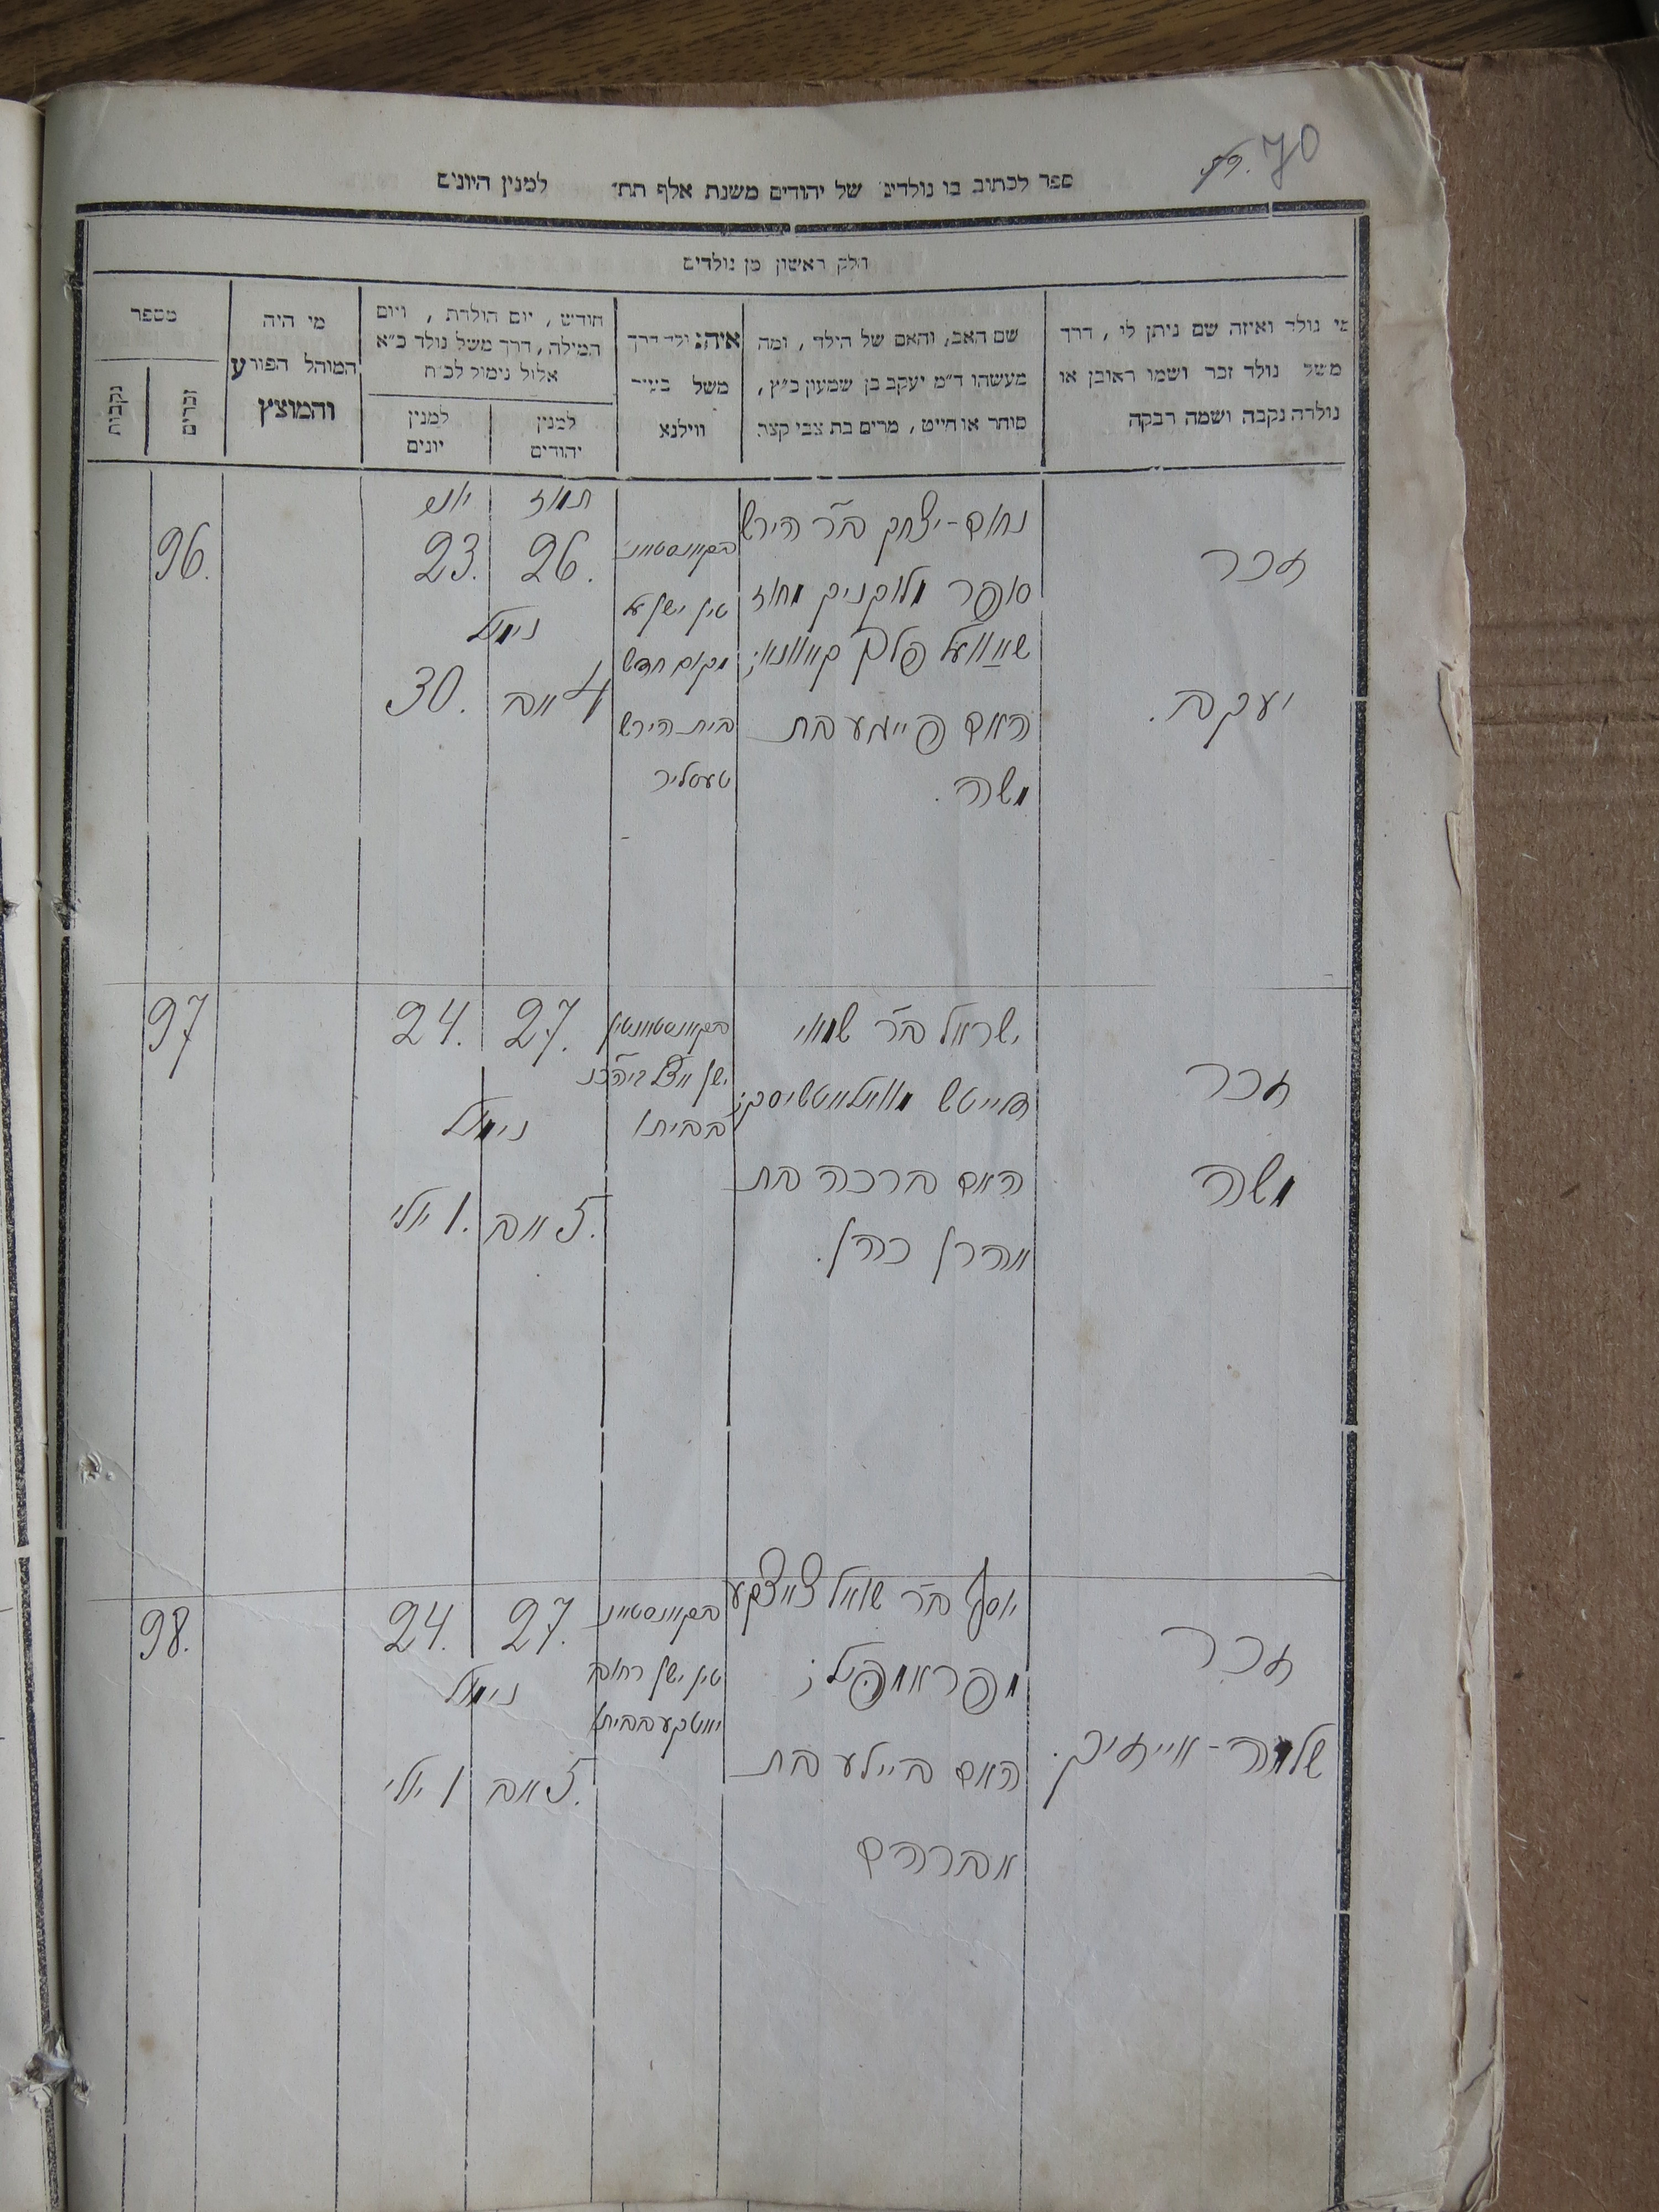 70
ספר לכתוב בו נולדים של יהודים משנת אלף תת׳ למנין היונים
חלק ראשון מן נולדים
מי נולד ואיזה שם ניתן לו, דרך
משל נולד זכר ושמו ראובן או
נולדה נקבה ושמה רבקה
שם האב, והאם של הילד, ומה
מעשהו ד״מ יעקב בן שמעון כ״ץ,
סוחר או חייט, מרים בת צבי קצב
איה נולד דרך
משל בעיר
ווילנא
חודש, יום הולדת, ויום
המילה, דרך משל נולד כ״א
אלול נימול לכ״ח
למנין
יהודים
למנין
יונים
מי היה
המוהל הפורע
והמוצץ
מספר
זכרים
נקבות
זכר
יעקב.
נחום-יצחק ב״ר הירש
סופר מלוקניק מחוז
שאוועל פלך קאוונא;
האם פייגע בת
משה.
בקאנסטאנ
טין ישן על
מקום חדש
בית הירש
טעסליר
תמוז
26.
נימול
4 אב
יוני
23.
30.
96.
זכר
משה
ישראל ב״ר שמאי
דייטש
האם ברכה בת
אהרן כהן.
בקאנסטאנטין
ישן אצל
בביתו
27.
נימול
5. אב
24.
1. יולי
97
זכר
שלמה-אייזיק.
יוסף ב״ר שמואל
האם ביילע בת
אברהם
בקאנסטאנ
טין ישן רחוב
בביתו
27.
נימול
5. אב
24.
1 יולי
98.